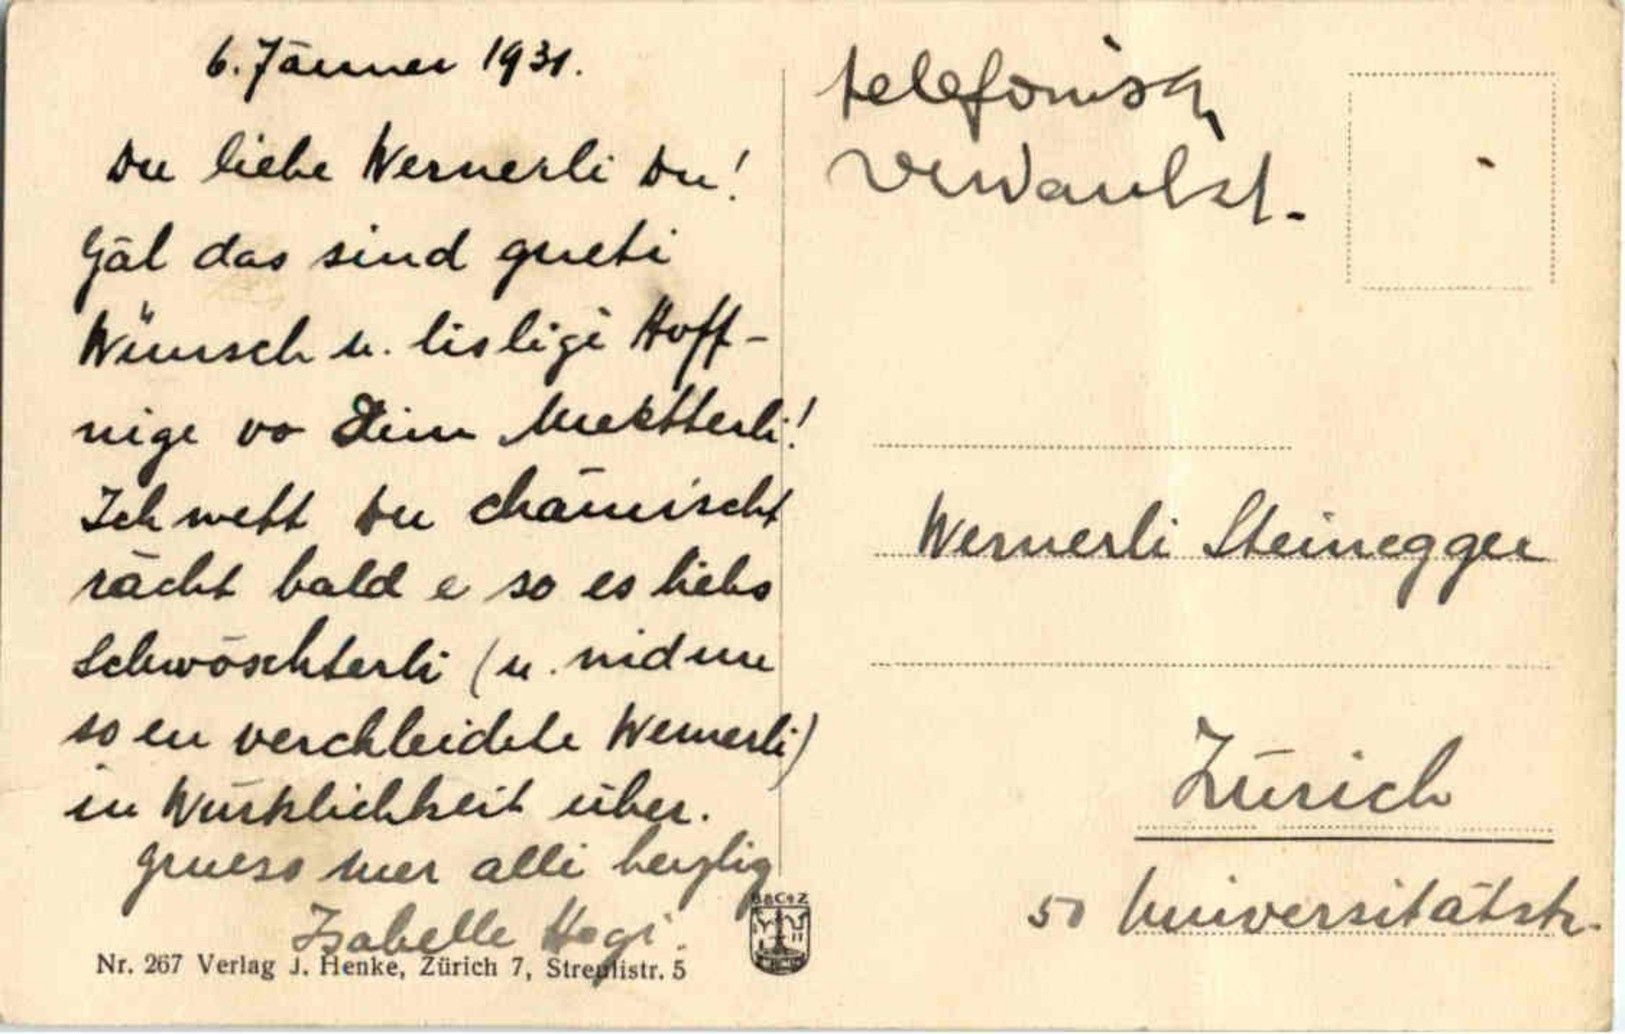 6. Jänner 1931.
Du liebe Wernerli Du!
Gäl das sind gueti
Wünsch u. lisligi Hoff-
nige vo Dim Muettterli!
Ich wett Du chämischt
rächt bald e so es liebs
Schwöschterli (u. nid nu
so en verchleidete Wernerli)
in Würklichkeit über.
Gruess mer alli herzlig
Isabelle Hegi.
Nr. 267 Verlag J. Henke, Zürich 7, Streulistr. 5
telefonisch
verdankt.
Wernerli Steinegger
Zürich
50 Universitätstr.